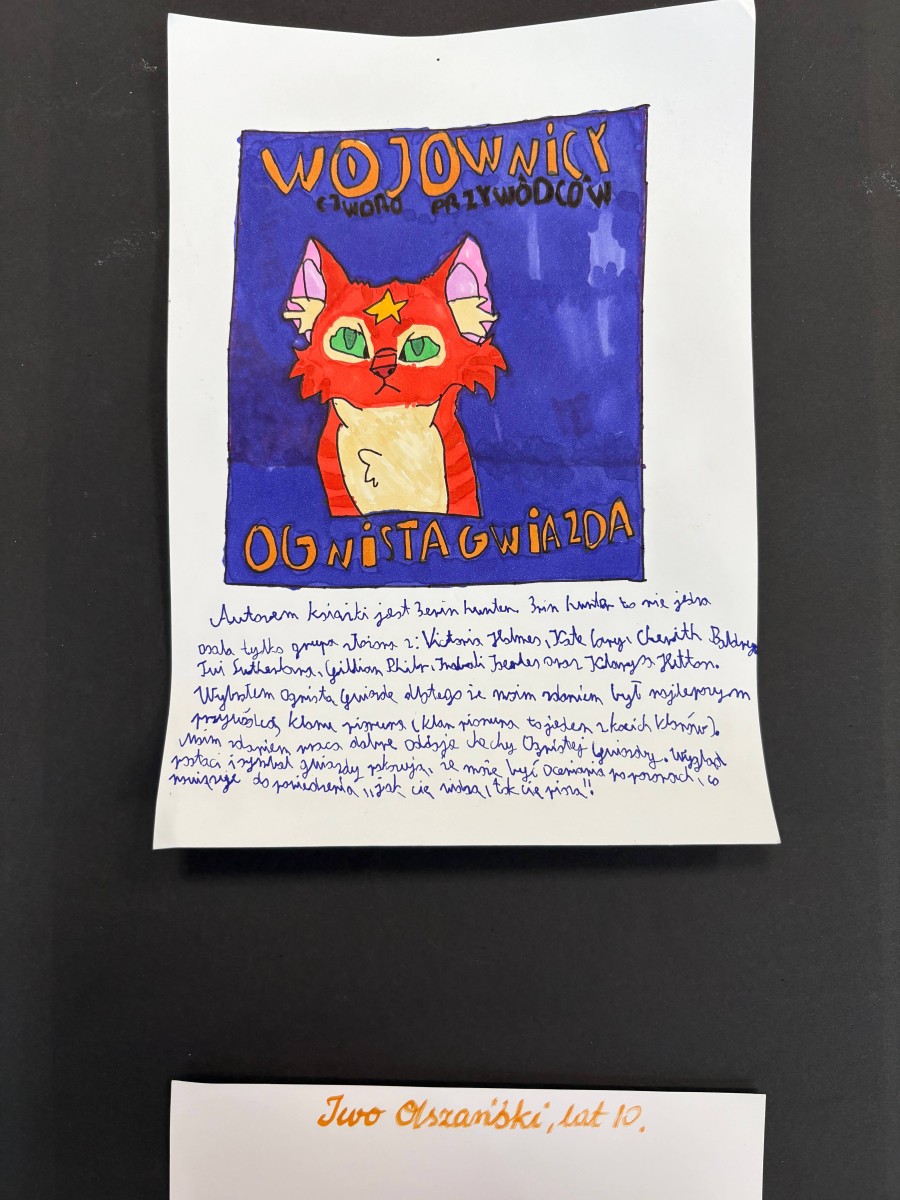 WOJOWNICY
CZWORO PRZYWÓDCÓW
OGNISTA GWIAZDA
Autorem książki jest Erin hunter. Erin hunter to nie jedna
osoba tylko grupa złożona z: Victoria Holmes, Kate Cary, Cherith Baldry,
Tui Sutherland, Gillian Philip, oraz Hutton.
Wybrałem Ognistą Gwiazdę dlatego że moim zdaniem był najlepszym
przywódcą klanu pioruna (klan pioruna to jeden z kocich klanów).
Moim zdaniem praca dobrze oddaje cechy Ognistej Gwiazdy. Wygląd
postaci i symbol gwiazdy pokazują, że może być oceniania po pozorach, co
nawiązuje do powiedzenia „jak cię widzą, tak cię piszą".
Iwo Olszański, lat 10.